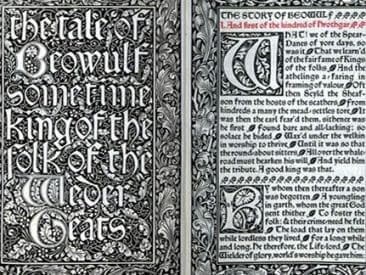 the tale of
Beowulf
sometime
king of the
folk of the
Weder
Geats
THE STORY OF BEOWULF
I. And first of the kindred of Hrothgar.
WHAT! we of the Spear-
Danes of yore days, so
was it That we learn'd
of the fair fame of kings
of the folks And the
athelings a-faring in
framing of valour. Oft
then Scyld the Sheaf-
son from the hosts of the scathers, from
kindreds a many the mead-settles tore; It
was then the earl fear'd them, sithence was
he first Found bare and all-lacking; so
solace he bided, Wax'd under the welkin
in worship to thrive, Until it was so that
the round about sitters, All over the whale-
road must hearken his will And yield him
the tribute. A good king was that.
BY whom then thereafter a son
was begotten, A youngling
in garth, whom the great God
sent thither To foster the
folk; & their crime-need he felt
The load that lay on them
while lordless they lived, For a long while
and long. He therefore, the Life-lord, The
Wielder of glory, world's worship he gave him: